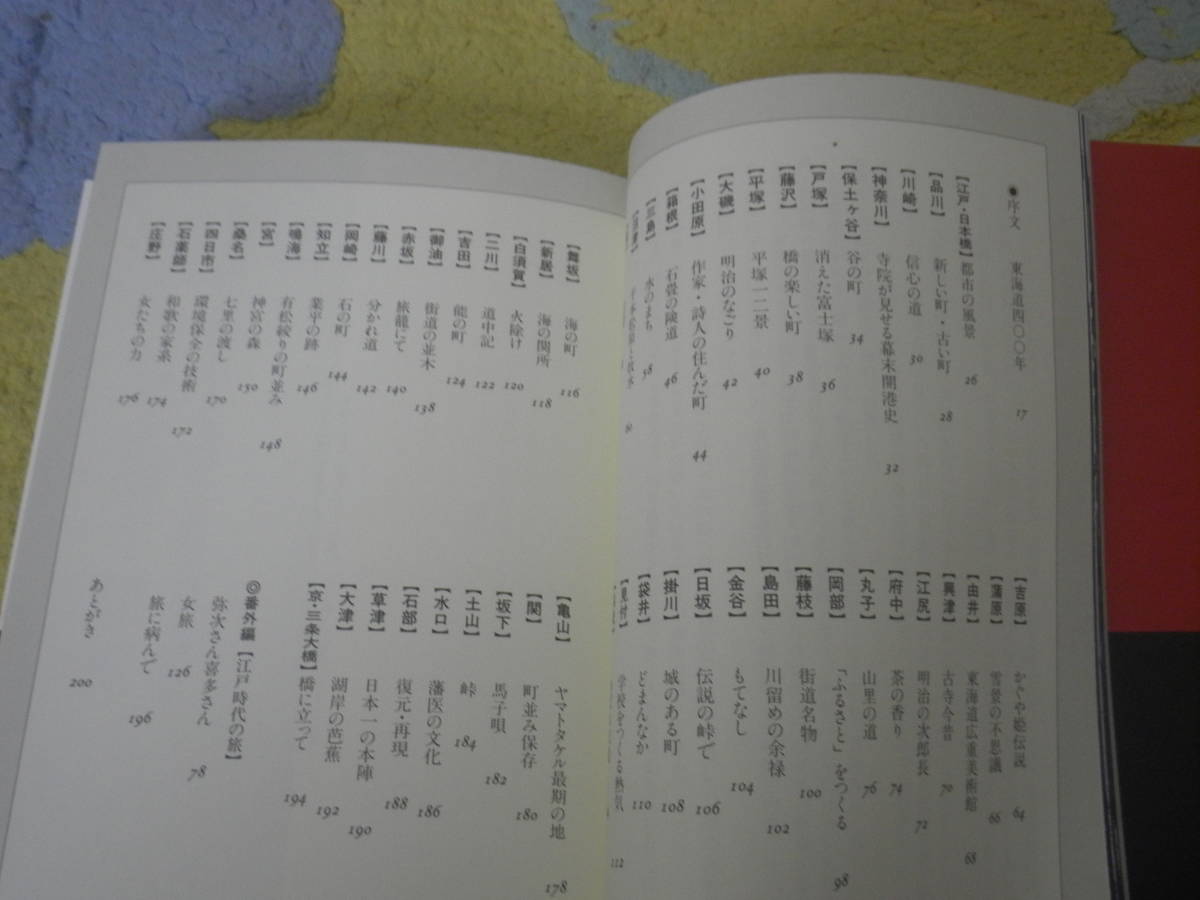 ●序文　東海道四〇〇年　17
【江戸・日本橋】都市の風景　26
【品川】　新しい町・古い町　28
【川崎】　信心の道　30
【神奈川】　寺院が見せる幕末開港史　32
【保土ヶ谷】　谷の町　34
【戸塚】　消えた富士塚　36
【藤沢】　橋の楽しい町　38
【平塚】　平塚一二景　40
【大磯】　明治のなごり　42
【小田原】　作家・詩人の住んだ町　44
【箱根】　石畳の険道　46
【三島】　水のまち　58
【吉原】　かぐや姫伝説　64
【蒲原】　雪景の不思議　66
【由井】　東海道広重美術館　68
【興津】　古寺今昔　70
【江尻】　明治の次郎長　72
【府中】　茶の香り　74
【丸子】　山里の道　76
【岡部】　「ふるさと」をつくる　98
【藤枝】　街道名物　100
【島田】　川留めの余禄　102
【金谷】　もてなし　104
【日坂】　伝説の峠で　106
【掛川】　城のある町　108
【袋井】　どまんなか　110
【見付】　学校をつくる熱気　112
【舞坂】　海の町　116
【新居】　海の関所　118
【白須賀】　火除け　120
【二川】　道中記　122
【吉田】　能の町　124
【御油】　街道の並木　138
【赤坂】　旅籠にて　140
【藤川】　分かれ道　142
【岡崎】　石の町　144
【知立】　業平の跡　146
【鳴海】　有松絞りの町並み　148
【宮】　神宮の森　150
【桑名】　七里の渡し　170
【四日市】　環境保全の技術　172
【石薬師】　和歌の家系　174
【庄野】　女たちの力　176
【亀山】　ヤマトタケル最期の地　178
【関】　町並み保存　180
【坂下】　馬子唄　182
【土山】　峠　184
【水口】　藩医の文化　186
【石部】　復元・再現　188
【草津】　日本一の本陣　190
【大津】　湖岸の芭蕉　192
【京・三条大橋】橋に立って　194
◎番外編【江戸時代の旅】
弥次さん喜多さん　78
女旅　126
旅に病んで　196
あとがき　200